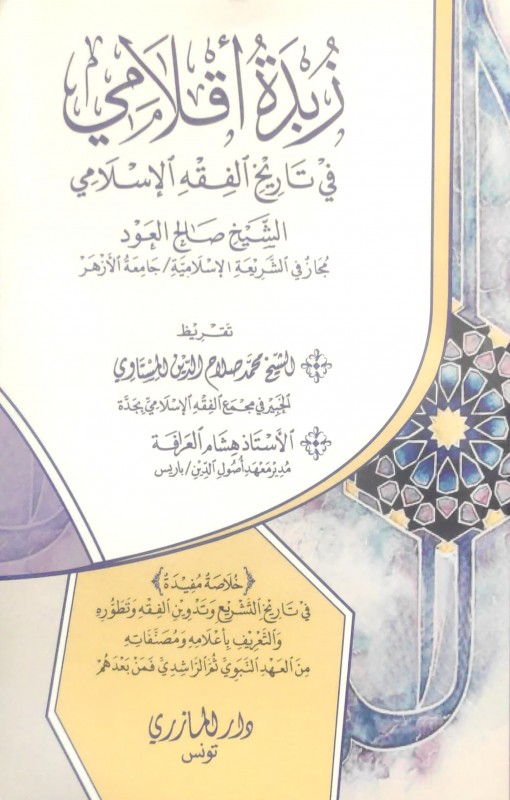 زُبْدَةُ أَقْلَامِي
فِي تَارِيخِ الفِقْهِ الإِسْلَامِي
الشَّيْخ صَالِح العَوْد
مُجَازٌ فِي الشَّرِيعَةِ الإِسْلَامِيَّةِ/جَامِعَةُ الأَزْهَرْ
تَقْرِيظ
الشَّيْخ مُحَمَّد صَلَاح الدِّين المِسْتَاوِي
الخَبِير فِي مَجْمَعِ الفِقْهِ الإِسْلَامِيِّ بِجَدَّة
الأُسْتَاذ هِشَام العَرَافَة
مُدِير مَعْهَدِ أُصُولِ الدِّينِ/بَارِيس
خُلَاصَةٌ مُفِيدَةٌ
فِي تَارِيخِ التَّشْرِيعِ وَتَدْوِينِ الفِقْهِ وَتَطَوُّرِهِ
وَالتَّعْرِيفِ بِأَعْلَامِهِ وَمُصَنَّفَاتِهِ
مِنَ العَهْدِ النَّبَوِيِّ ثُمَّ الرَّاشِدِي فَمَنْ بَعْدَهُمْ
دار المازري
تونس